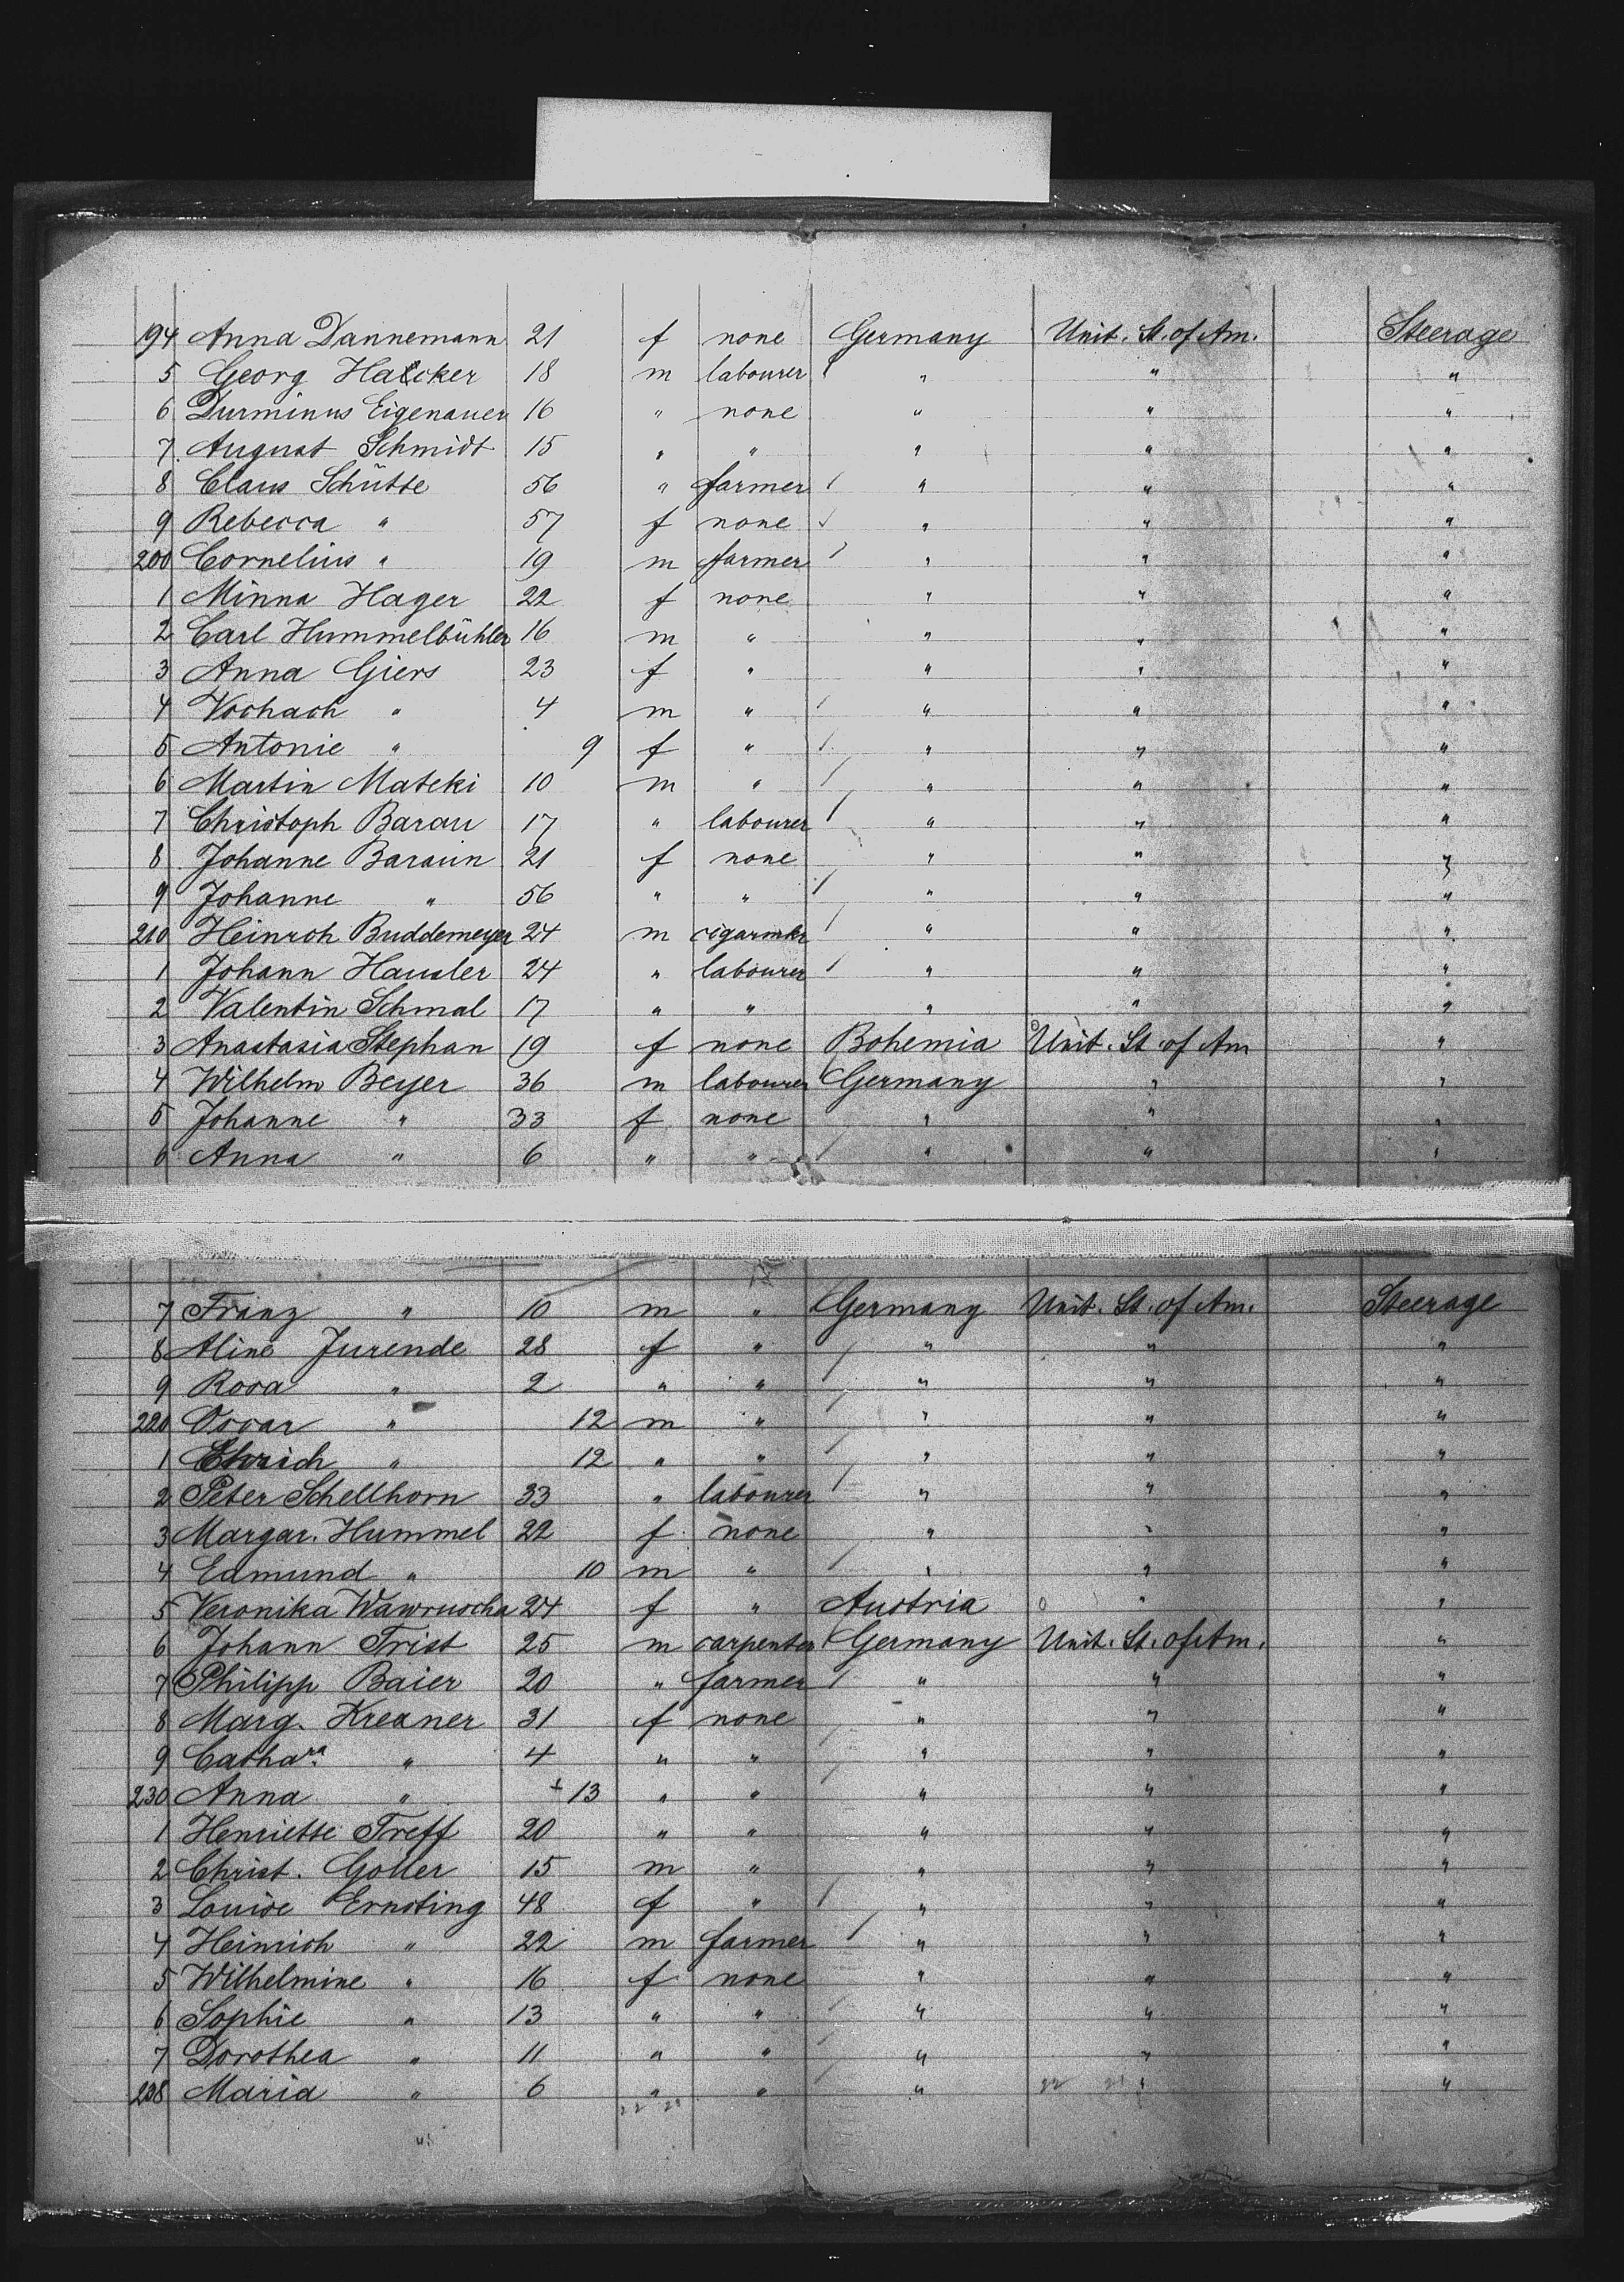 194 Anna Dannemann 21 f none Germany Unit. St. of Am. Steerage
5 Georg Hacker 18 m labourer " " "
6 Durminus Eigenauer 16 " none " " "
7 August Schmidt 15 " " " " "
8 Claus Schütte 56 " farmer " " "
9 Rebecca " 57 f none " " "
200 Cornelius " 19 m farmer " " "
1 Minna Hager 22 f none " " "
2 Carl Hummelbühler 16 m " " " "
3 Anna Giers 23 f " " " "
4 " 4 m " " " "
5 Antonie " 9 f " " " "
6 Martin Mateki 10 m " " " "
7 Christoph Barau 17 " labourer " " "
8 Johanne Baraun 21 f none " " "
9 Johanne " 56 " " " " "
210 Heinrch Buddemeyer 24 m cigarmkr " " "
1 Johann Hausler 24 " labourer " " "
2 Valentin Schmal 17 " " " " "
3 Anastasia Stephan 19 f none Bohemia Unit. St. of Am "
4 Wilhelm Beyer 36 m labourer Germany " "
5 Johanne " 33 f none " " "
6 Anna " 6 " " " " "
7 Franz " 10 m " Germany Unit. St. of Am. Steerage
8 Aline Jurende 28 f " " " "
9 Rosa " 2 " " " " "
220 Oscar " 12 m " " " "
1 " 12 " " " " "
2 Peter Schellhorn 33 " labourer " " "
3 Margar. Hummel 22 f none " " "
4 Edmund " 10 m " " " "
5 Veronika Wawruscha 24 f " Austria " "
6 Johann Trist 25 m carpenter Germany Unit. St. of Am. "
7 Philipp Baier 20 " farmer " " "
8 Marg. Kreaner 31 f none " " "
9 Cathara " 4 " " " " "
230 Anna " 13 " " " " "
1 Henriette Treff 20 " " " " "
2 Christ. Goller 15 m " " " "
3 Louise Ernsting 48 f " " " "
4 Heinrich " 22 m farmer " " "
5 Wilhelmine " 16 f none " " "
6 Sophie " 13 " " " " "
7 Dorothea " 11 " " " " "
238 Maria " 6 " " " " "